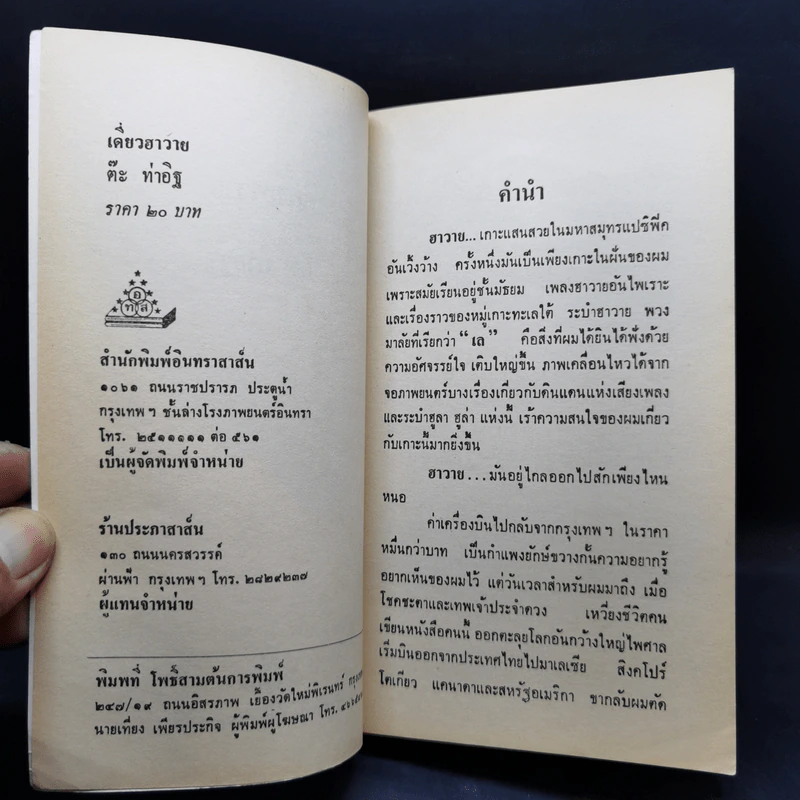 เดี่ยวฮาวาย
ต๊ะ ท่าอิฐ
ราคา ๒๐ บาท
อ
ท ส
สำนักพิมพ์อินทราสาส์น
๑๐๖๑ ถนนราชปรารภ ประตูน้ำ
กรุงเทพฯ ชั้นล่างโรงภาพยนตร์อินทรา
โทร. ๒๕๑๑๑๑๑ ต่อ ๕๖๑
เป็นผู้จัดพิมพ์จำหน่าย
ร้านประภาสาส์น
๑๓๐ ถนนนครสวรรค์
ผ่านฟ้า กรุงเทพฯ โทร. ๒๘๒๙๒๓๗
ผู้แทนจำหน่าย
พิมพ์ที่ โพธิ์สามต้นการพิมพ์
๒๔๗/๑๙ ถนนอิสรภาพ เยื้องวัดใหม่พิเรนทร์
นายเที่ยง เพียรประกิจ ผู้พิมพ์ผู้โฆษณา โทร.
คำนำ
ฮาวาย...เกาะแสนสวยในมหาสมุทรแปซิฟีค
อันเวิ้งว้าง ครั้งหนึ่งมันเป็นเพียงเกาะในฝันของผม
เพราะสมัยเรียนอยู่ชั้นมัธยม เพลงฮาวายอันไพเราะ
และเรื่องราวของหมู่เกาะทะเลใต้ ระบำฮาวาย พวง
มาลัยที่เรียกว่า “เล” คือสิ่งที่ผมได้ยินได้ฟังด้วย
ความอัศจรรย์ใจ เติบใหญ่ขึ้น ภาพเคลื่อนไหวได้จาก
จอภาพยนตร์บางเรื่องเกี่ยวกับดินแดนแห่งเสียงเพลง
และระบำฮูลา ฮูล่า แห่งนี้ เร้าความสนใจของผมเกี่ยว
กับเกาะนี้มากยิ่งขึ้น
ฮาวาย...มันอยู่ไกลออกไปสักเพียงไหน
หนอ
ค่าเครื่องบินไปกลับจากกรุงเทพฯ ในราคา
หมื่นกว่าบาท เป็นกำแพงยักษ์ขวางกั้นความอยากรู้
อยากเห็นของผมไว้ แต่วันเวลาสำหรับผมมาถึง เมื่อ
โชคชะตาและเทพเจ้าประจำดวง เหวี่ยงชีวิตคน
เขียนหนังสือคนนี้ ออกตะลุยโลกอันกว้างใหญ่ไพศาล
เริ่มบินออกจากประเทศไทยไปมาเลเซีย สิงคโปร์
โตเกียว แคนาดาและสหรัฐอเมริกา ขากลับผมตัด